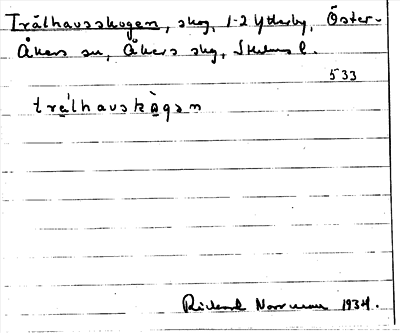 Trälhavsskogen, skog, 1-2 Ytterby, Öster-
Åkers sn, Åkers skg, Sthlms l.
533
trälhavskògan
Rickard Norrman 1934.